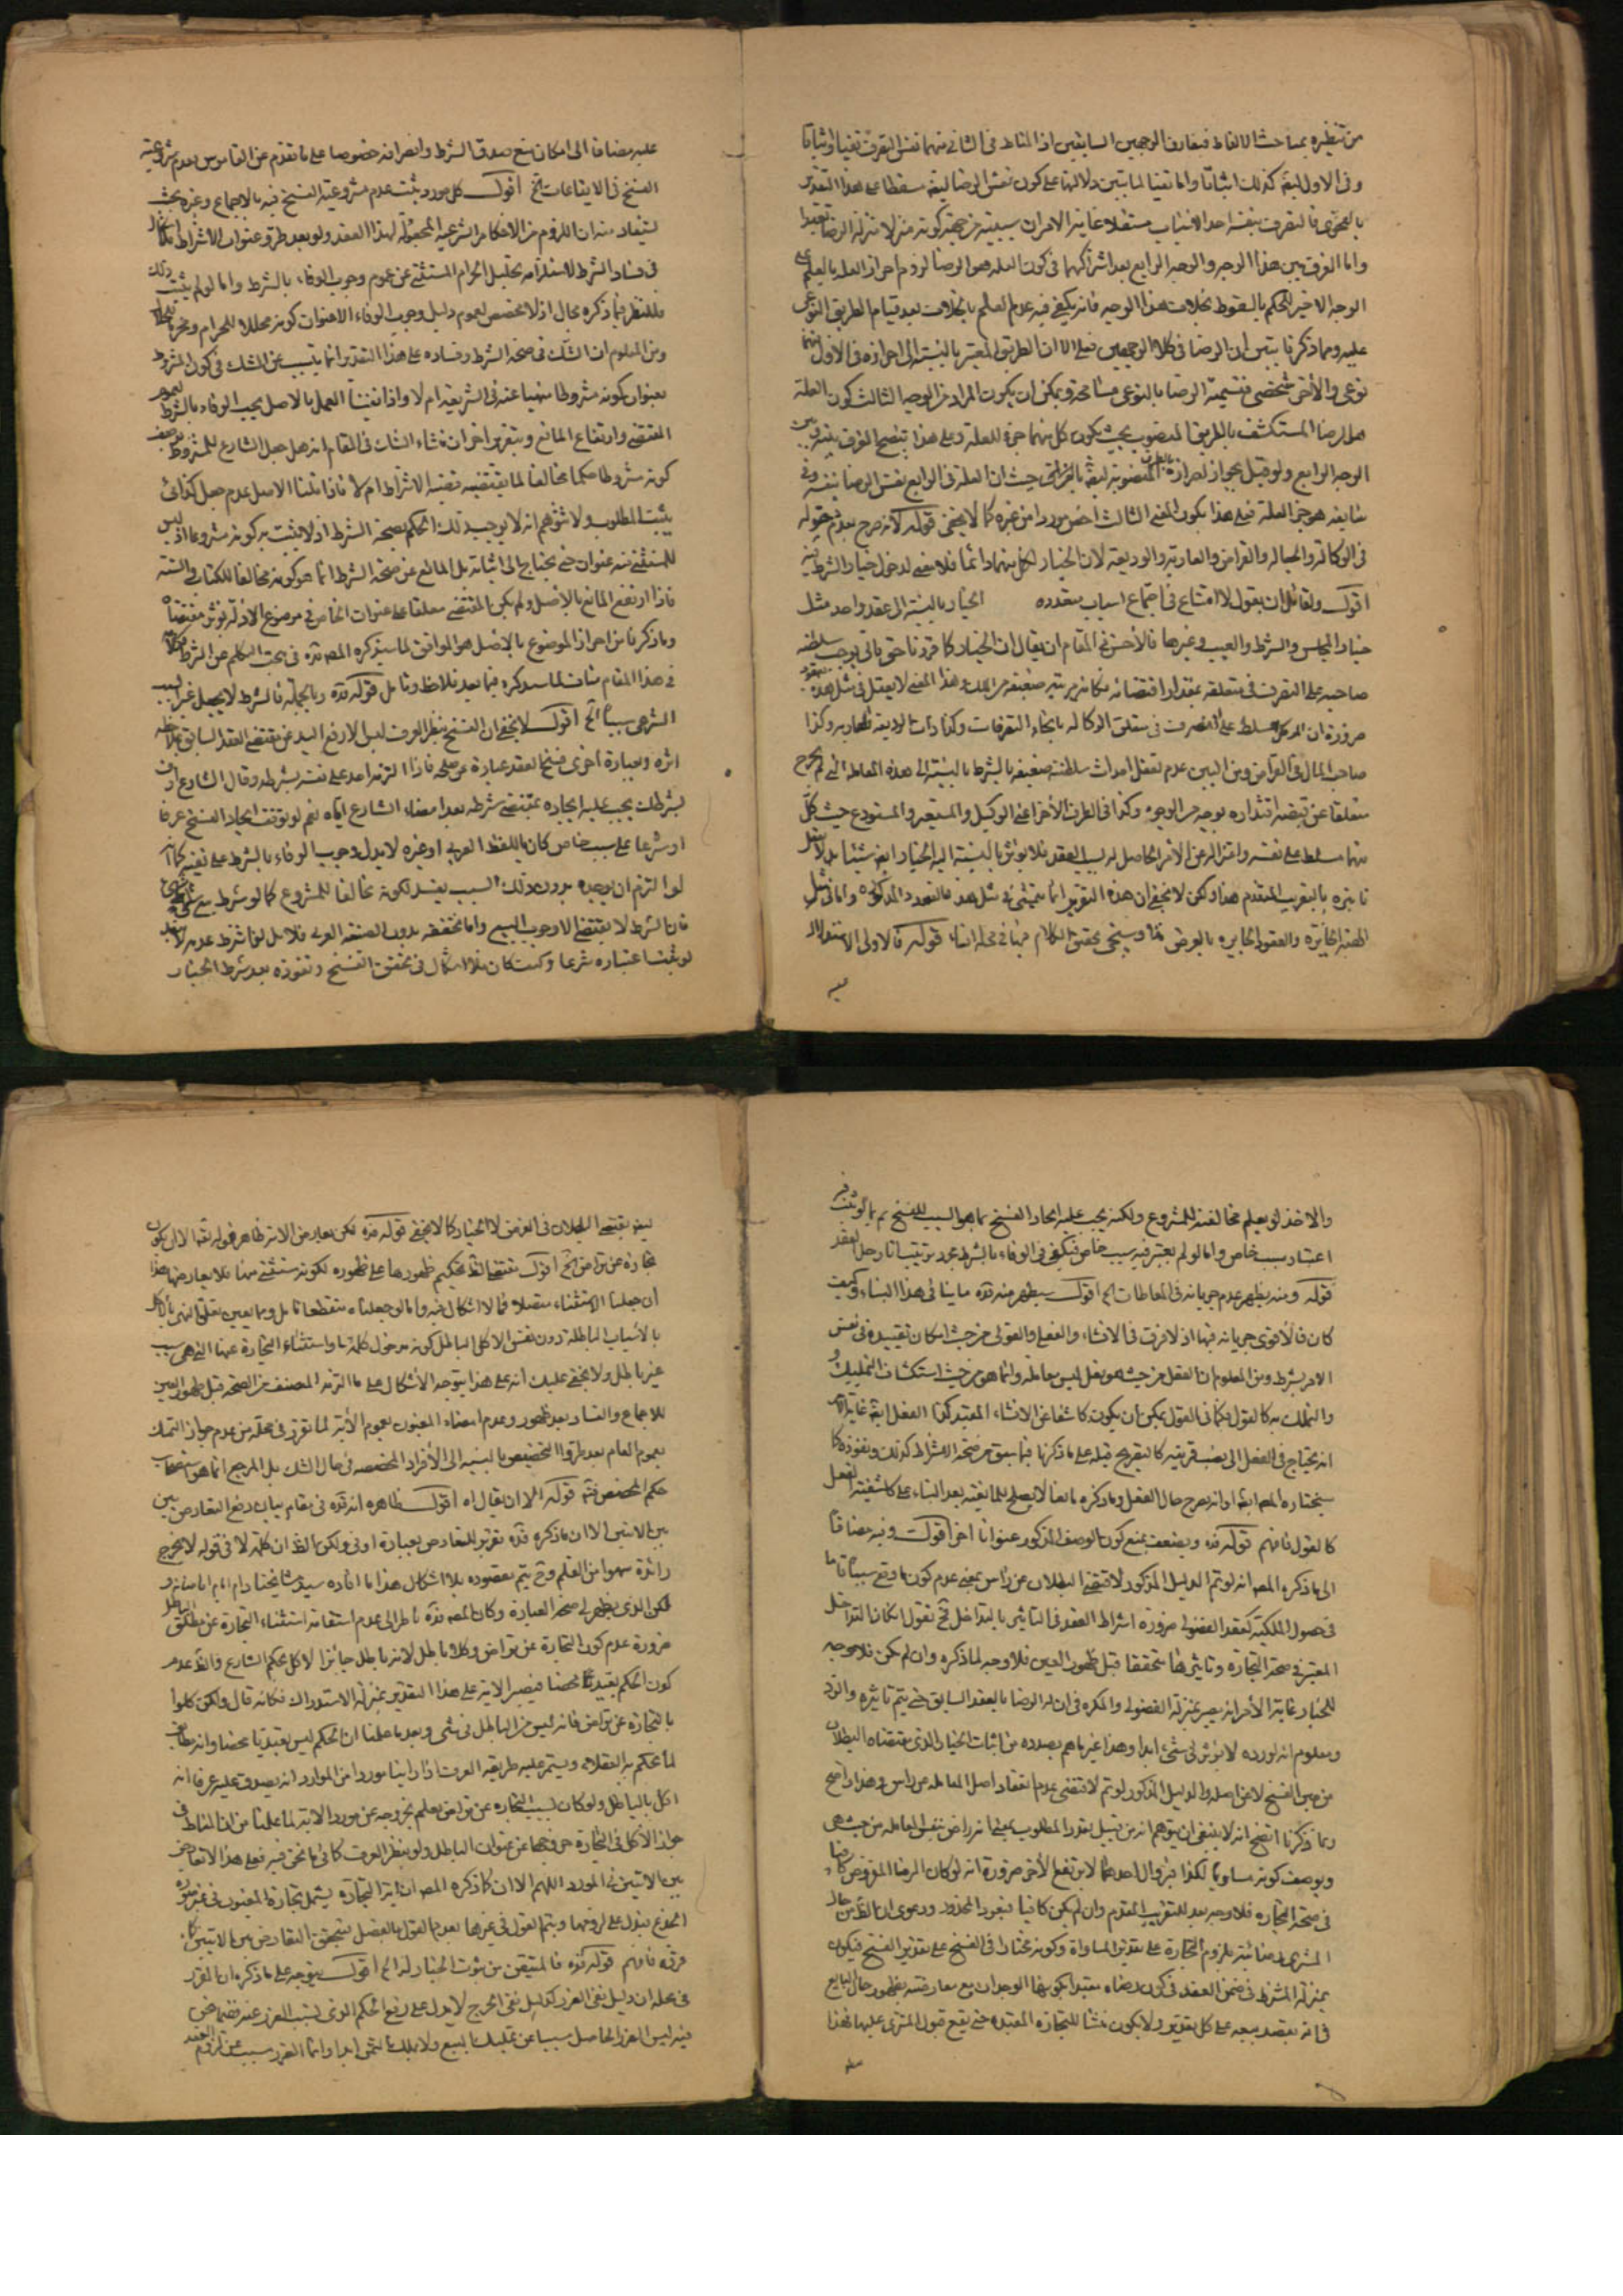 من تنظيره بمباحث الالفاظ فيفارق الوجهين السابقين اذ المناط فى الثانى منهما نفس التصرف نفيا واثباتا
وفى الاول ليقه كذلك اثباتا واما نفيا لما بين دلالتها على كون نفس الرضا ليقه مسقطا على هذا التقدير
فالتصرف بنفسه احد الاسباب مستقلا غاية الامر ان سببيته من جهة كونه منزلا منزلة الرضا تعبدا
واما الفرق بين هذا الوجه والوجه الرابع بعد اشتراكهما فى كون العلة هو الرضا لزوم احراز العلة بالعلم على
الوجه الاخير للحكم بالسقوط بخلاف هذا الوجه فانه يكفى فيه عدم العلم بالخلاف بعد قيام الطريق النوعى
عليه ومما ذكرنا تبين ان الرضا فى كلا الوجهين فعلى الا ان الطريق المعتبر بالنسبة الى احرازه فى الاول منهما
نوعى والاخر شخصى فتسمية الرضا بالنوعى مسامحة ويمكن ان يكون المراد من الوجه الثالث كون العلة
هل الرضا المستكشف بالطريق المنصوب بحيث يكون كل منهما جزء للعلة وعلى هذا يتضح الفرق بينه وبين
الوجه الرابع ولو قيل بجواز احرازه المنصوبة ليقه حيث ان العلة فى الرابع نفس الرضا بنفسه وفى
سابقه هو جزء العلة فعلى هذا يكون المعنى الثالث اخص موردا من غيره كما لا يخفى قوله لانه صرح بعدم دخوله
فى الوكالة والجعالة والقراض والعارية والوديعة لان الخيار لكل منهما دائما فلا معنى لدخول خيار الشرط فيه
اقول ولقائل ان يقول لا امتناع فى اجتماع اسباب متعددة الخيار بالنسبة الى عقد واحد مثل
خيار المجلس والشرط والعيب وغيرها فالاحسن فى المقام ان يقال ان الخيار كما قررنا حق يوجب سلطنة
صاحبه على التصرف فى متعلقه بمقدار اقتضائه فكانه مرتبة ضعيفة من الملك وهذا المعنى لا يعقل فى مثل هذه العقود
ضرورة ان الموكل مسلط على التصرف فى متعلق الوكالة بانحاء التصرفات وكذا ذات الوديعة والعارية وكذا
صاحب المال فى القراض ومن البين عدم تعقل احداث سلطنة ضعيفة بالشرط بالنسبة الى هذه المعاملة التى لم يخرج
متعلقها عن قبضة اقتداره بوجه من الوجوه وكذا فى الطرف الاخر اعنى الوكيل والمستعير والمستودع حيث كل
منهما مسلط على نفسه واعتزاله عن الامر الحاصل له بسبب العقد فلا يؤثر بالنسبة اليه الخيار ايضا شيئا بل لا يعقل
تاثيره بالتقريب المتقدم هذا ولكن لا يخفى ان هذه التقرير انما يتمشى فى مثل هذه العقود المذكورة واما فى مثل
الهبة الجائزة والعقود الجايزة بالعرض فلا وسيجىء تحقيق الكلام فيها فى محله انشاء قوله فالاولى الاستدلال
عليه
عليه مضافا الى امكان منع صدق الشرط وانصرافه خصوصا على ما تقدم عن القاموس بعدم مشروعية
الفسخ فى الايقاعات الخ اقول كل مورد ثبت عدم مشروعية الفسخ فيه بالاجماع وغيره بحيث
يستفاد منه ان اللزوم من الاحكام الشرعية المجعولة لهذا العقد ولو بعد طرو عنوان الاشتراط فلا اشكال
فى فساد الشرط لاستلزامه تحليل الحرام المستثنى عن عموم وجوب الوفاء بالشرط واما لو لم يثبت ذلك
فللنظر فيما ذكره مجال اذ لا مخصص لعموم دليل وجوب الوفاء الا عنوان كونه محللا للحرام ومحرما للحلال
ومن المعلوم ان الشك فى صحة الشرط وفساده على هذا التقدير انما يتسبب عن الشك فى كون الشرط
بعنوان كونه مشروطا منهيا عنه فى الشريعة ام لا واذا نفينا العمل بالاصل يجب الوفاء بالشرط لعموم
المقتضى وارتفاع المانع وبتقرير اخر ان منشاء الشك فى المقام انه هل جعل الشارع للمشروط بوصف
كونه مشروطا حكما مخالفا لما يقتضيه قضية الاشتراط ام لا فاذا قلنا الاصل عدم جعل كذائى
يثبت المطلوب ولا يتوهم انه لا يوجب ذلك الحكم بصحة الشرط اذ لا يثبت به كونه مشروعا اذ ليس
للمستثنى منه عنوان حتى يحتاج الى اثباته بل المانع عن صحة الشرط انما هو كونه مخالفا للكتاب والسنة
فاذا ارتفع المانع بالاصل ولم يكن المقتضى معلقا على عنوان الخاص فى موضوع الادلة فيؤثر مقتضاه
وما ذكرنا من احراز الموضوع بالاصل هو الموافق لما سيذكره المصنف قده فى بحث الكلام عن الشرط وكلامه
فى هذا المقام مناف لما سيذكره فيما بعد فلاحظ وتامل قوله قده وبالجملة فالشرط لا يجعل غير السبب
الشرعى سببا الخ اقول لا يخفى ان الفسخ بنظر العرف ليس الا رفع اليد عن مقتضى العقد السابق
اثره وبعبارة اخرى فسخ العقد عبارة عن حله فاذا التزم احد على نفسه بشرطه وقال الشارع اوف
بشرطك يجب عليه ايجاده بمقتضى شرطه بعد امضاء الشارع اياه نعم لو توقف ايجاد الفسخ عرفا
او شرعا على سبب خاص كان باللفظ العربى او غيره لا يدل وجوب الوفاء بالشرط على نفيه كما
لو التزم ان يوجده بدون ذلك السبب يفسد لكونه مخالفا للمشروع كما لو شرط بيع شىء
فان الشرط لا يقتضى الا وجوب البيع واما تحققه بدون الصيغة العربى فلا بل لو اشترط عدمه لا ينفذ
لو ثبت اعتباره شرعا وكيف كان فلا اشكال فى تحقق الفسخ ونفوذه بعد شرط الخيار
والاخذ لو يعلم مخالفته للمشروع ولكنه يجب عليه ايجاد الفسخ بما هو السبب للفسخ ثم لو ثبت فيه
اعتبار سبب خاص واما لو لم يعتبر فيه سبب خاص فيكفى فى الوفاء بالشرط مجرد ترتيب اثار حل العقد
قوله ومنه يظهر عدم جريانه فى المعاطات الخ اقول سيظهر منه قده ما ينافى هذا البناء وكيف
كان فالاقوى جريانه فيها اذ لا فرق فى الانشاء والفعلى والقولى من حيث امكان تقييده فى نفس
الامر بشرط ومن المعلوم ان الفعل من حيث هو فعل ليس معاملة وانما هو من حيث استكشاف التمليك
والتملك به كالقول فكما فى القول يمكن ان يكون كاشفا عن الانشاء المعتبر كذا الفعل ايضا غاية الامر
انه يحتاج فى الفعل الى نصب قرينة كالتصريح قبله على ما ذكرنا فيما سبق من صحة الاشتراط كذلك ونفوذه كما
سيختاره المصنف ايضا او انه صرح حال الفعل وما ذكره مانعا لا يصلح للمانعية بعد البناء على كاشفية الفعل
كالقول فافهم قوله قده ويضعف بمنع كون الوصف المذكور عنوانا الخ اقول وفيه مضافا
الى ما ذكره المصنف انه لو تم الدليل المذكور لاقتضى البطلان عن راس بمعنى عدم كون ما وقع سببا تاما
فى حصول الملكية كعقد الفضولى ضرورة اشتراط العقد فى التاثير بالتداخل نقول ان كان التداخل
المعتبر فى صحة التجارة وتاثيرها متحققا قبل ظهور العيب فلا وجه لما ذكره وان لم يكن فلا وجه
للخيار غاية الامر انه يصير بمنزلة الفضولى والمكره فى ان له الرضا بالعقد السابق حتى يتم تاثيره والرد
ومعلوم انه لو رده لا يؤثر فى شىء ابدا وهذا غير ما هم بصدده من اثبات الخيار الذى مقتضاه البطلان
من حين الفسخ لا من اصله والدليل المذكور لو تم لاقتضى عدم انعقاد اصل المعاملة من راس وهذا واضح
ومما ذكرنا اتضح انه لا ينبغى ان يتوهم انه من قبيل تعدد المطلوب بمعنى انه راض بنفس المعاملة من حيث هى
وبوصف كونه مساويا لكذا فبزوال احدهما لا يرتفع الاخر ضرورة انه لو كان الرضا المفروض كافيا
فى صحة التجارة فلا وجه بعد للتقريب المتقدم وان لم يكن كافيا فيعود المحذور ودعوى ان الظاهر من حال
المشترى رضائيته بلزوم التجارة على تقدير المساواة وكونه مختارا فى الفسخ على تقدير الفسخ فيكون
بمنزلة الشرط فى ضمن العقد فى كون رضاه مقيدا يكون بها الوجدان مع معارضته بظهور حال البايع
فى انه يقصد بيعه على كل تقدير ولا يكون منشا للتجارة المقيدة حتى يقع قبول المشترى عليها فهذا
ليقه يقتضى البطلان فى الفرض لا الخيار كما لا يخفى قوله قده لكن يعارض الاية ظاهر قوله تعالى الا ان يكون
تجارة عن تراض الخ اقول مقتضى القاعدة تحكيم ظهورها على ظهوره لكونه مستثنى منها فلا يعارضها هذا
ان جعلنا الاستثناء متصلا فلا اشكال فيه واما لو جعلناه منقطعا تامل ومما يعين تعلق النهى بالاكل
بالاسباب الباطلة دون نفس الاكل الباطل كونه مدخول كلمة باء واستثناء التجارة عنها التى هى سبب
غير باطل ولا يخفى عليك انه على هذا يتوجه الاشكال على ما التزمه المصنف من الصحة قبل ظهور الغبن
للاجماع والفساد بعد ظهوره وعدم امضاء المغبون لعموم الاية لما تقرر فى محله من عدم جواز التمسك
بعموم العام بعد طرو التخصيص بالنسبة الى الافراد المخصصة فى حال الشك بل المرجع انما هو استصحاب
حكم المخصص فتم قوله الا ان يقال اه اقول ظاهره انه قده فى مقام بيان رفع التعارض بين
بين الايتين الا ان ما ذكره قده تقرير للتعارض بعبارة اوفى ولكن الظاهر ان كلمة لا فى قوله لا يخرج
زائدة سهوا من القلم وح يتم مقصوده بلا اشكال هذا ما افاده سيد مشايخنا دام ايام افاضاته و
لكن الذى يظهر لى صحة العبارة وكان المصنف قده ناظر الى عدم استقامة استثناء التجارة عن مطلق الباطل
ضرورة عدم كون التجارة عن تراض وكلا باطل لانه باطل جائز الاكل بحكم الشارع والظاهر عدم
كون الحكم تعبديا محضا فيصير الاية على هذا التقدير بمنزلة الاستدراك فكانه قال ولكن كلوا
بالتجارة عن تراض فانه ليس من الباطل فى شىء وبعد ما علمنا ان الحكم ليس تعبديا محضا وانه مطابق
لما يحكم به العقلاء ويستمر عليه طريقة العرف اذا راينا موردا من الموارد انه يصدق عليه عرفا انه
اكل بالباطل ولو كان بسبب التجارة عن تراض يعلم بخروجه عن مورد الاية لما علمنا من ان المناط فى
جواز الاكل فى التجارة خروجها عن عنوان الباطل ولو بنظر العرف كما فى ما نحن فيه فعلى هذا الا تعارض
بين الايتين فى المورد اللهم الا ان كما ذكره المصنف ان اية التجارة يشمل تجارة المغبون فى غير صورة
الخدع فيدل على لزومها ويتم القول فى غيرها بعدم القول بالفصل فيتحقق التعارض بين الايتين كما
قرره فافهم قوله قده فالمتيقن من ثبوت الخيار له الخ اقول يتوجه على ما ذكره ان القرر
فى محله ان دليل نفى الضرر كدليل نفى الحرج لا يدل على رفع الحكم الذى يتسبب الضرر عنه فيما نحن
فيه ليس الضرر الحاصل سببا عن تمليك المبيع ولا تملك الثمن ابدا وانما الضرر سبب عن لزوم العقد